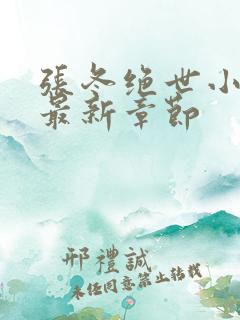 張冬绝世小
最新章節
邢禮誠
未经同意禁止转载